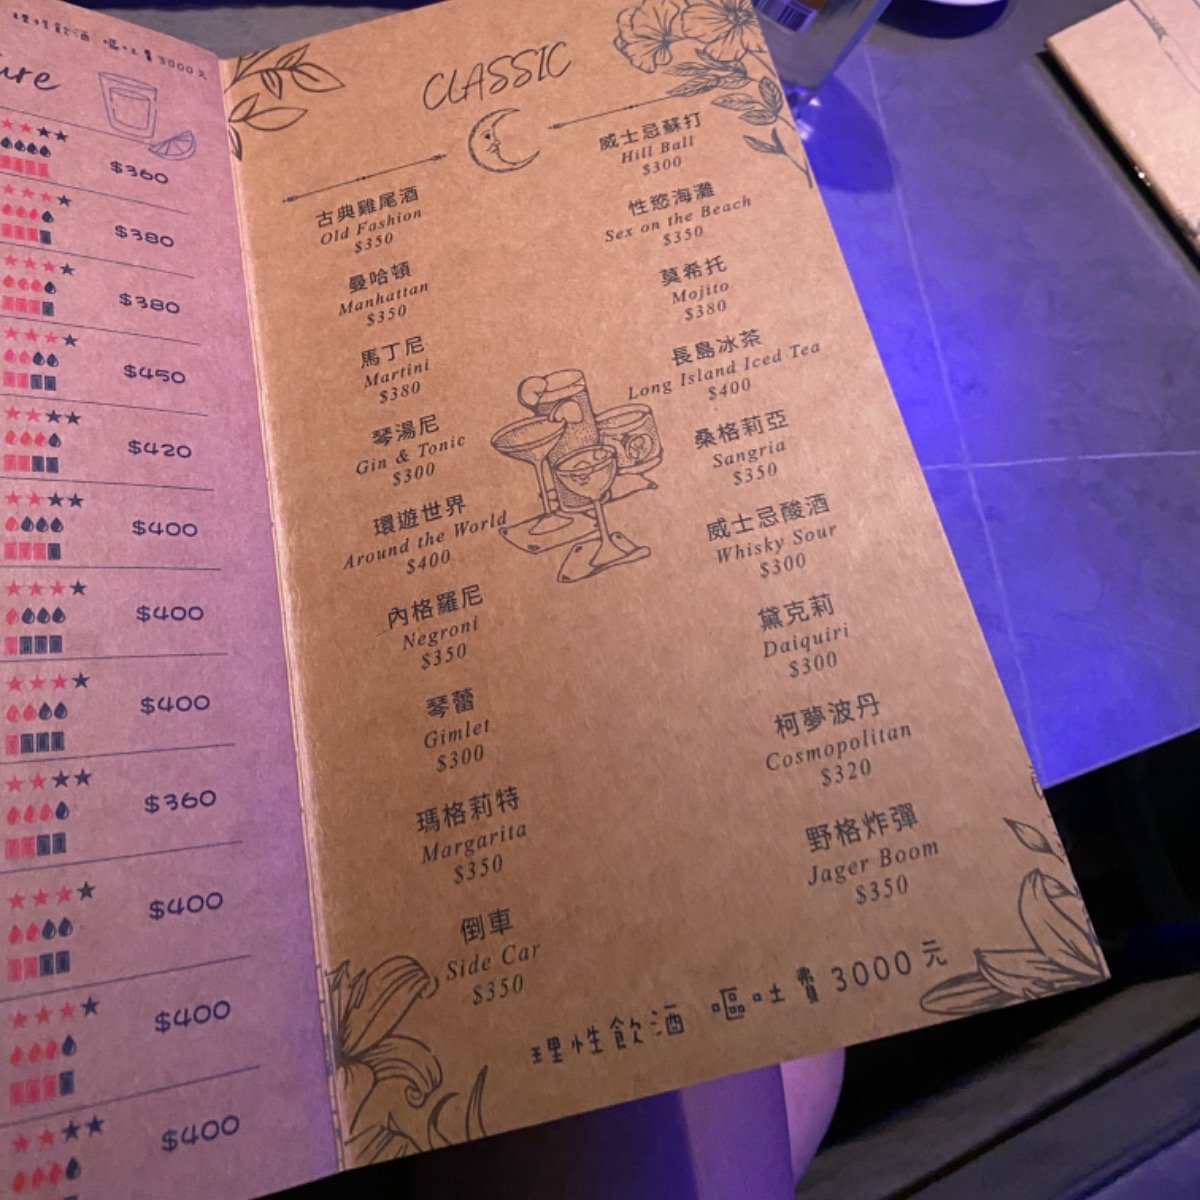 理性飲酒 嘔吐費3000元
ure
$360
$380
$380
$450
$420
$400
$400
$400
$360
$400
$400
$400
CLASSIC
古典雞尾酒
Old Fashion
$350
曼哈頓
Manhattan
$350
馬丁尼
Martini
$380
琴湯尼
Gin & Tonic
$300
環遊世界
Around the World
$400
內格羅尼
Negroni
$350
琴蕾
Gimlet
$300
瑪格莉特
Margarita
$350
倒車
Side Car
$350
威士忌蘇打
Hill Ball
$300
性慾海灘
Sex on the Beach
$350
莫希托
Mojito
$380
長島冰茶
Long Island Iced Tea
$400
桑格莉亞
Sangria
$350
威士忌酸酒
Whisky Sour
$300
黛克莉
Daiquiri
$300
柯夢波丹
Cosmopolitan
$320
野格炸彈
Jager Boom
$350
理性飲酒 嘔吐費3000元